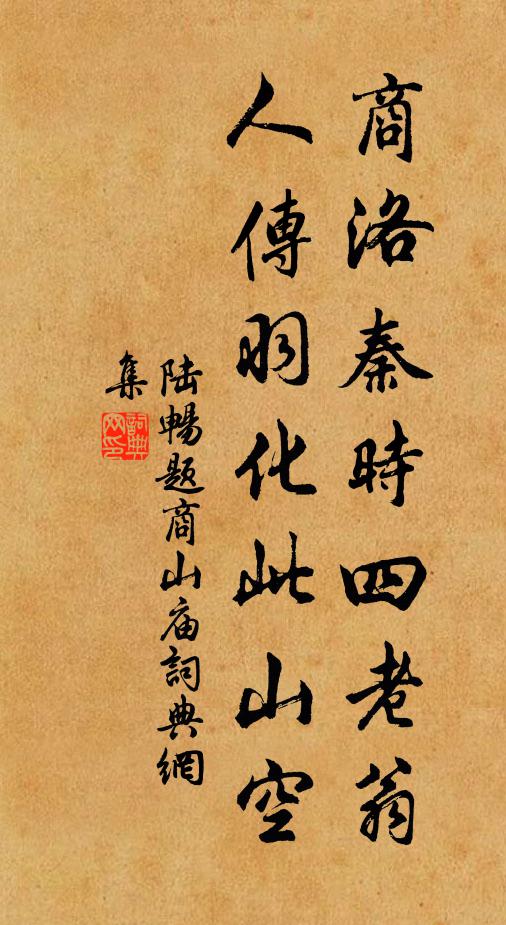 商洛秦時四老翁
人傳羽化此山空
陆暢题商山庙詞典網
集
詞典网印